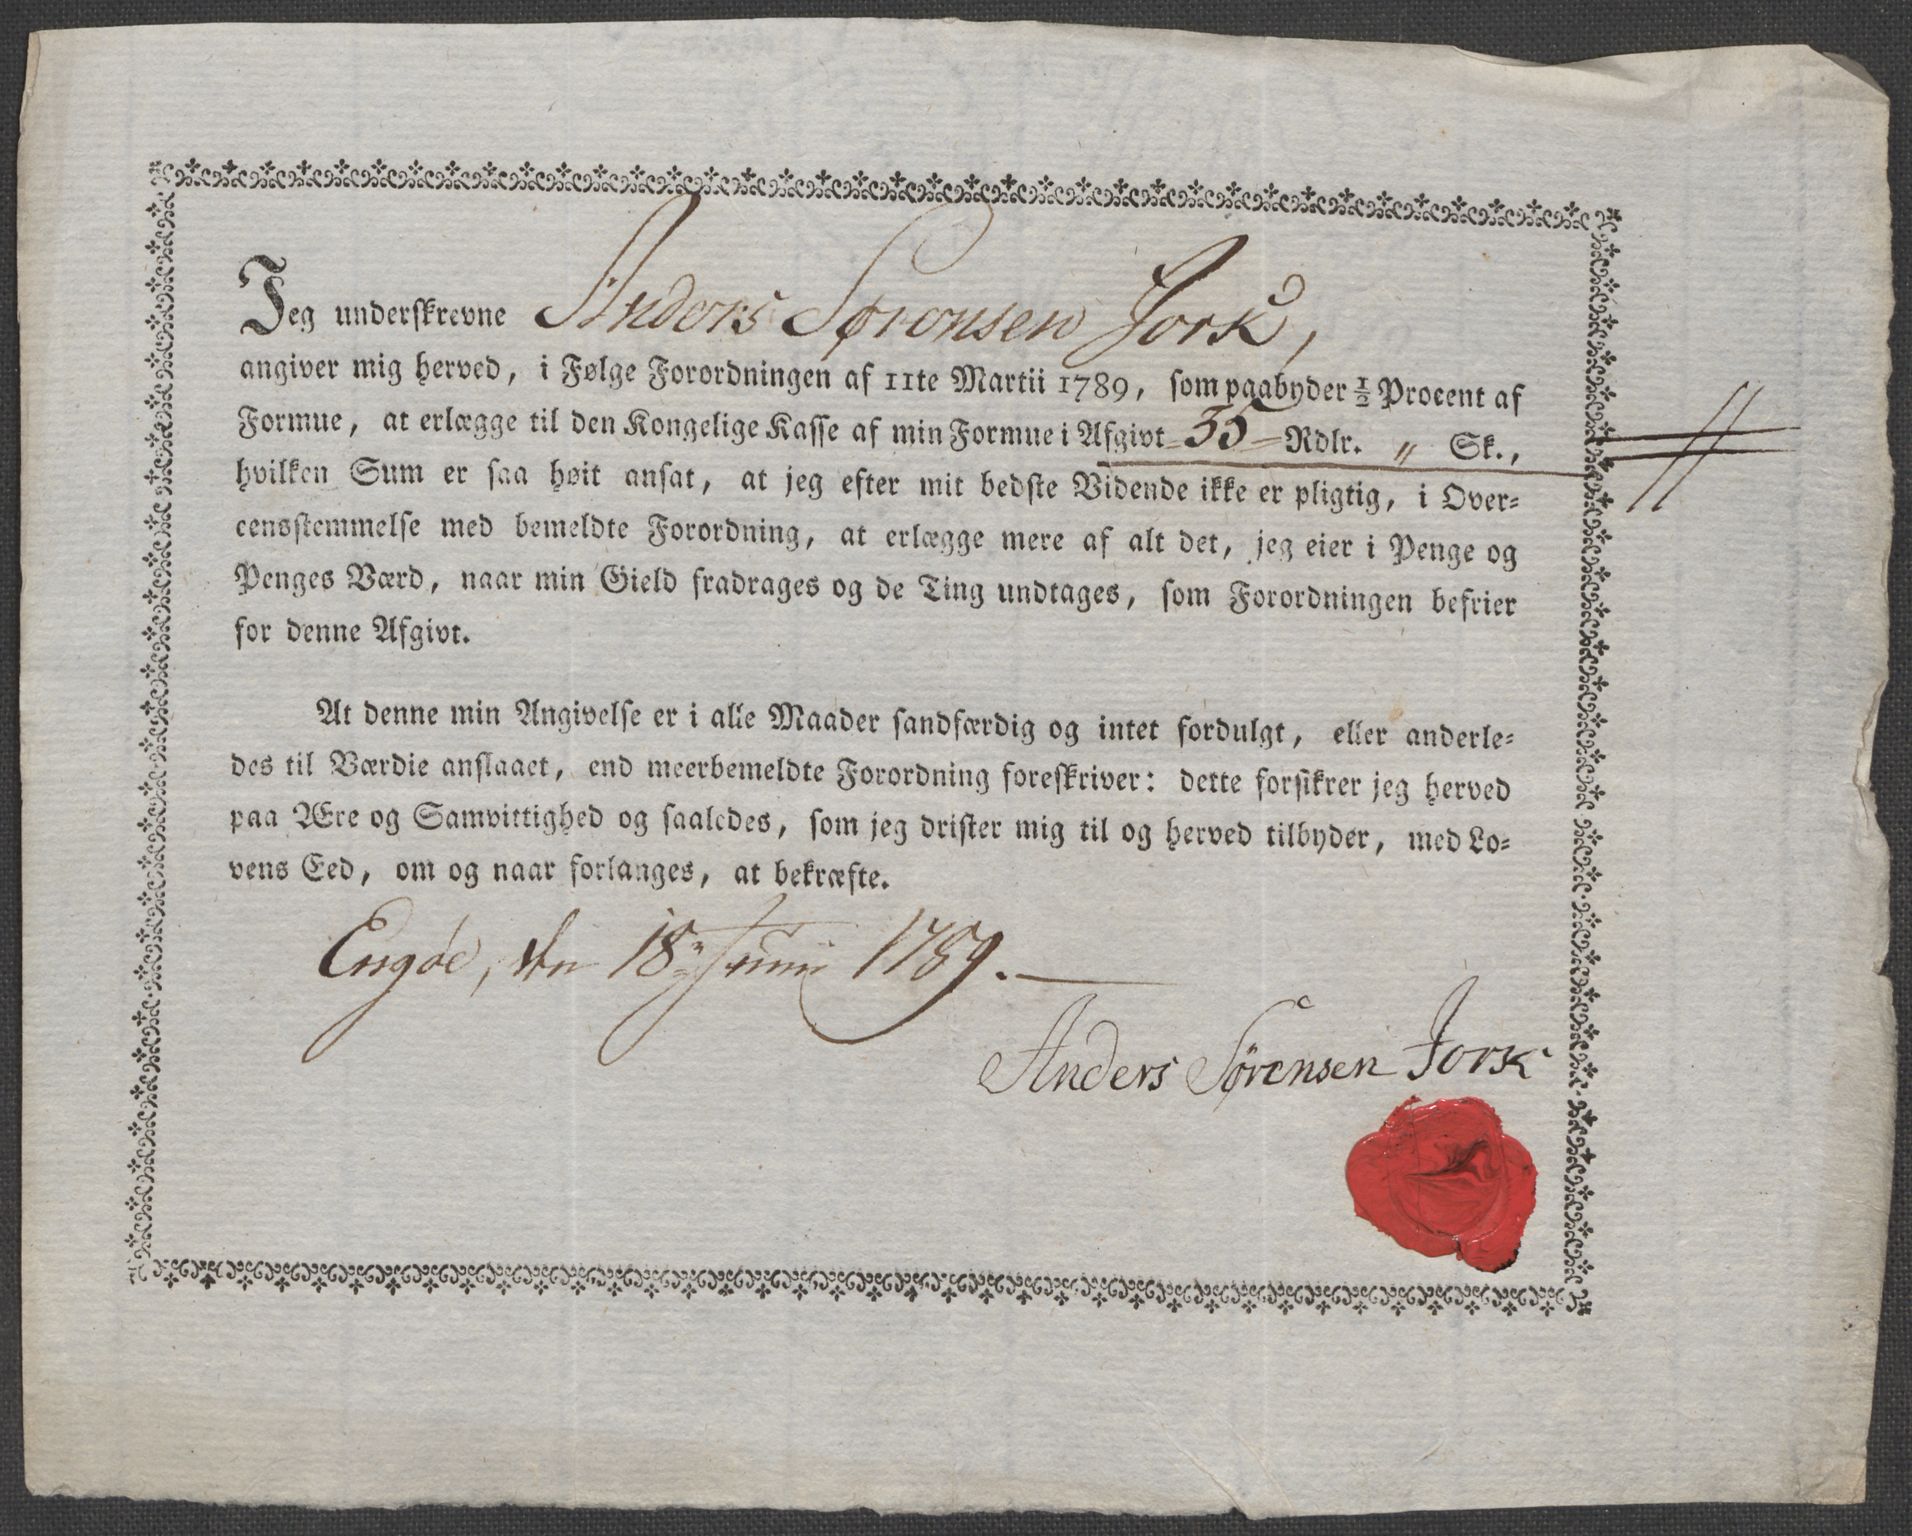 Jeg underskrevne Anders Sørensen Jork,
angiver mig herved, i Følge Forordningen af 11te Martii 1789, som paabyder ½ Procent af
Formue, at erlægge til den Kongelige Kasse af min Formue i Afgivt 35 Rdlr. " Sk.,
hvilken Sum er saa høit ansat, at jeg efter mit bedste Vidende ikke er pligtig, i Over-
eensstemmelse med bemeldte Forordning, at erlægge mere af alt det, jeg eier i Penge og
Penges Værd, naar min Gield fradrages og de Ting undtages, som Forordningen befrier
for denne Afgivt.
At denne min Angivelse er i alle Maader sandfærdig og intet fordulgt, eller anderle-
des til Værdie anslaaet, end meerbemeldte Forordning foreskriver: dette forsikrer jeg herved
paa Ære og Samvittighed og saaledes, som jeg drister mig til og herved tilbyder, med Lo-
vens Eed, om og naar forlanges, at bekræfte.
Engøe, den 18 Junii 1789.
Anders Sørensen Jork